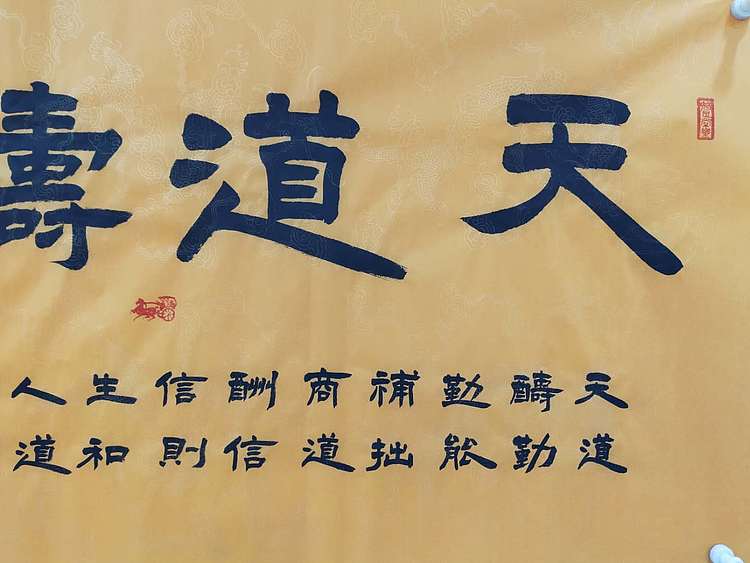 天道壽
天道
醻勤
勤能
補拙
商道
酬信
信則
生和
人道